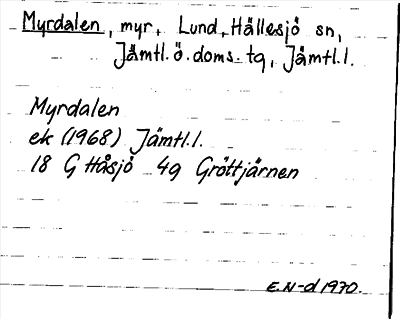 Myrdalen, myr, Lund, Hällesjö sn,
Jämtl. ö. doms. tg, Jämtl. l.
Myrdalen
ek (1968) Jämtl. l.
18 G Håsjö 4g Gröttjärnen
E.N-d 1970.